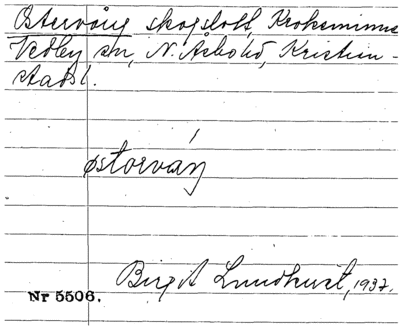 Ostervång skogslott, Kroksminne
Vedby sn, N. Åsbo hd, Kristian-
stads l.
østorváŋ
Birgit Lundkvist, 1937.
Nr 5506.